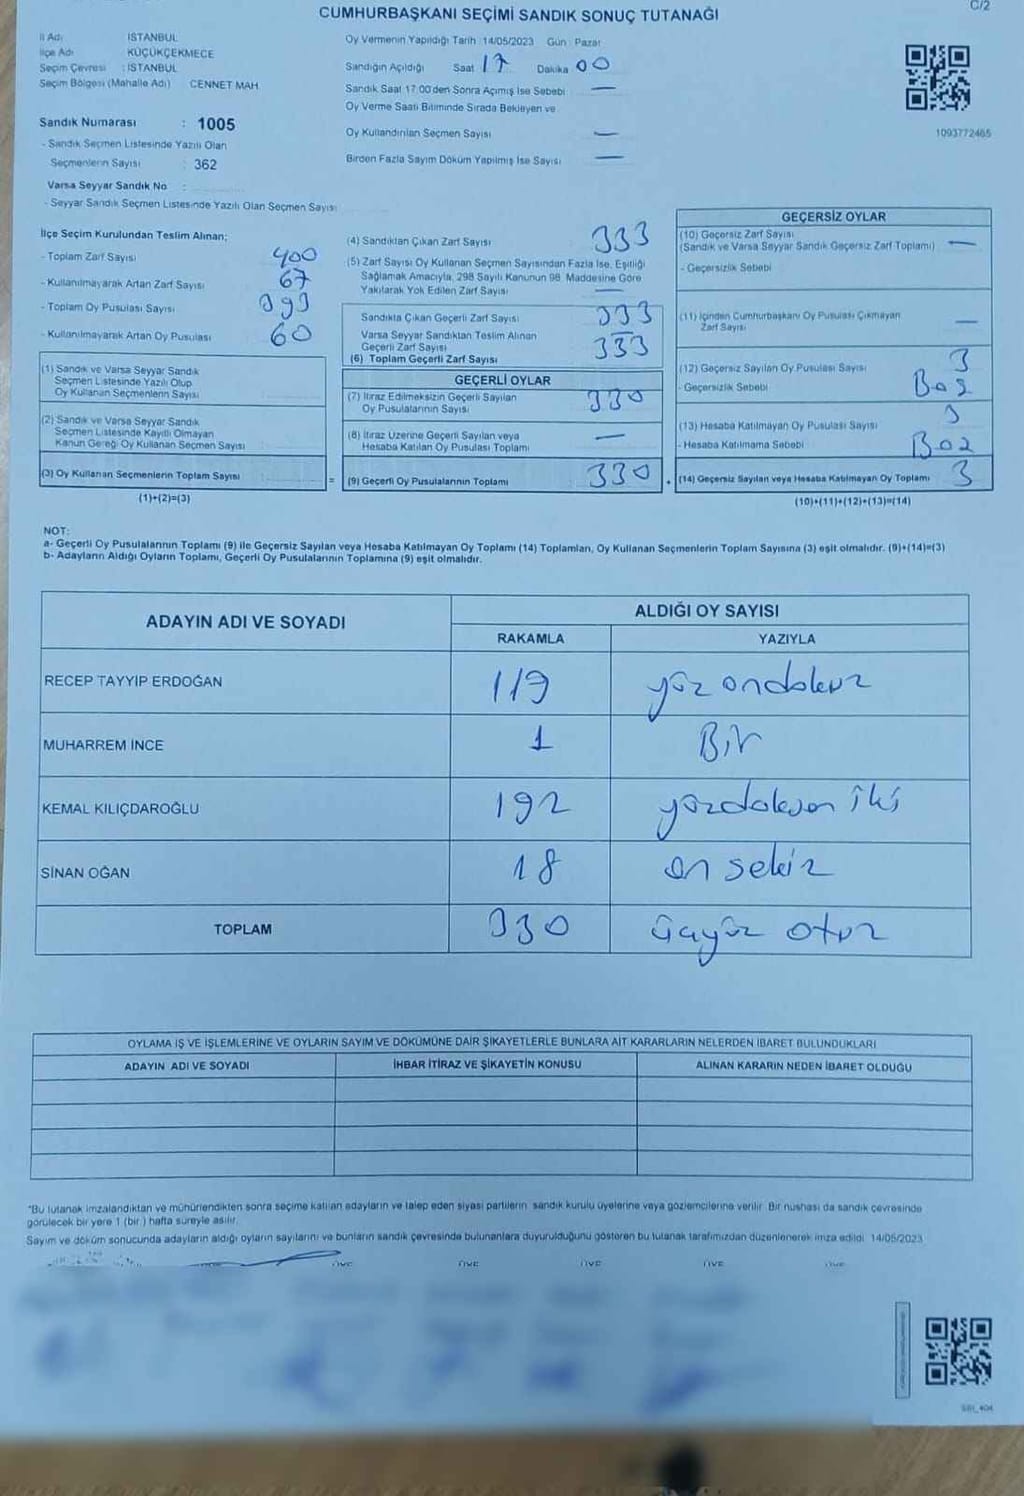 C/2
CUMHURBAŞKANI SEÇİMİ SANDIK SONUÇ TUTANAĞI
İl Adı : İSTANBUL
İlçe Adı : KÜÇÜKÇEKMECE
Seçim Çevresi : İSTANBUL
Seçim Bölgesi (Mahalle Adı) CENNET MAH
Sandık Numarası : 1005
- Sandık Seçmen Listesinde Yazılı Olan
Seçmenlerin Sayısı : 362
Varsa Seyyar Sandık No :
- Seyyar Sandık Seçmen Listesinde Yazılı Olan Seçmen Sayısı
Oy Vermenin Yapıldığı Tarih : 14/05/2023 Gün : Pazar
Sandığın Açıldığı Saat 17 Dakika 00
Sandık Saat 17:00'den Sonra Açılmış İse Sebebi —
Oy Verme Saati Bitiminde Sırada Bekleyen ve
Oy Kullandırılan Seçmen Sayısı —
Birden Fazla Sayım Döküm Yapılmış İse Sayısı —
1093772465
İlçe Seçim Kurulundan Teslim Alınan;
- Toplam Zarf Sayısı 400
- Kullanılmayarak Artan Zarf Sayısı 67
- Toplam Oy Pusulası Sayısı 393
- Kullanılmayarak Artan Oy Pusulası 60
(1) Sandık ve Varsa Seyyar Sandık
Seçmen Listesinde Yazılı Olup
Oy Kullanan Seçmenlerin Sayısı
(2) Sandık ve Varsa Seyyar Sandık
Seçmen Listesinde Kayıtlı Olmayan
Kanun Gereği Oy Kullanan Seçmen Sayısı
(3) Oy Kullanan Seçmenlerin Toplam Sayısı
=
(1)+(2)=(3)
(4) Sandıktan Çıkan Zarf Sayısı 333
(5) Zarf Sayısı Oy Kullanan Seçmen Sayısından Fazla İse, Eşitliği
Sağlamak Amacıyla, 298 Sayılı Kanunun 98. Maddesine Göre
Yakılarak Yok Edilen Zarf Sayısı —
Sandıkta Çıkan Geçerli Zarf Sayısı 333
Varsa Seyyar Sandıktan Teslim Alınan
Geçerli Zarf Sayısı —
(6) Toplam Geçerli Zarf Sayısı 333
GEÇERLİ OYLAR
(7) İtiraz Edilmeksizin Geçerli Sayılan
Oy Pusulalarının Sayısı 330
(8) İtiraz Üzerine Geçerli Sayılan veya
Hesaba Katılan Oy Pusulası Toplamı —
(9) Geçerli Oy Pusulalarının Toplamı 330
+
GEÇERSİZ OYLAR
(10) Geçersiz Zarf Sayısı
(Sandık ve Varsa Seyyar Sandık Geçersiz Zarf Toplamı) —
- Geçersizlik Sebebi
(11) İçinden Cumhurbaşkanı Oy Pusulası Çıkmayan
Zarf Sayısı —
(12) Geçersiz Sayılan Oy Pusulası Sayısı 3
- Geçersizlik Sebebi Boş
(13) Hesaba Katılmayan Oy Pusulası Sayısı 3
- Hesaba Katılmama Sebebi
(14) Geçersiz Sayılan veya Hesaba Katılmayan Oy Toplamı 3
(10)+(11)+(12)+(13)=(14)
NOT:
a- Geçerli Oy Pusulalarının Toplamı (9) ile Geçersiz Sayılan veya Hesaba Katılmayan Oy Toplamı (14) Toplamları, Oy Kullanan Seçmenlerin Toplam Sayısına (3) eşit olmalıdır. (9)+(14)=(3)
b- Adayların Aldığı Oyların Toplamı, Geçerli Oy Pusulalarının Toplamına (9) eşit olmalıdır.
ADAYIN ADI VE SOYADI
ALDIĞI OY SAYISI
RAKAMLA YAZIYLA
RECEP TAYYİP ERDOĞAN 119 yüz ondokuz
MUHARREM İNCE 1 Bir
KEMAL KILIÇDAROĞLU 192 yüzdoksan iki
SİNAN OĞAN 18 on sekiz
TOPLAM 330 üçyüz otuz
OYLAMA İŞ VE İŞLEMLERİNE VE OYLARIN SAYIM VE DÖKÜMÜNE DAİR ŞİKAYETLERLE BUNLARA AİT KARARLARIN NELERDEN İBARET BULUNDUKLARI
ADAYIN ADI VE SOYADI İHBAR İTİRAZ VE ŞİKAYETİN KONUSU ALINAN KARARIN NEDEN İBARET OLDUĞU
*Bu tutanak imzalandıktan ve mühürlendikten sonra seçime katılan adayların ve talep eden siyasi partilerin sandık kurulu üyelerine veya gözlemcilerine verilir. Bir nüshası da sandık çevresinde
görülecek bir yere 1 (bir) hafta süreyle asılır.
Sayım ve döküm sonucunda adayların aldığı oyların sayılarını ve bunların sandık çevresinde bulunanlara duyurulduğunu gösteren bu tutanak tarafımızdan düzenlenerek imza edildi. 14/05/2023
ÜYE ÜYE ÜYE ÜYE ÜYE